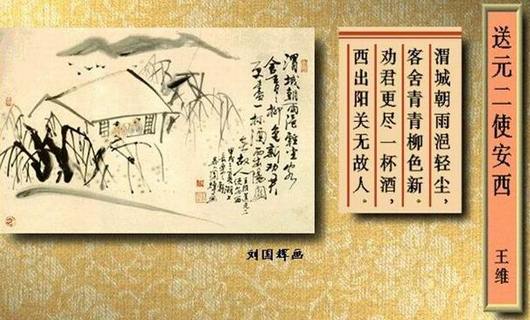 送元二使安西
王维
渭城朝雨浥轻尘，
客舍青青柳色新。
劝君更尽一杯酒，
西出阳关无故人。
渭城朝雨浥轻尘客
舍青青柳色新劝君
更尽一杯酒西出阳关
无故人
刘国辉画